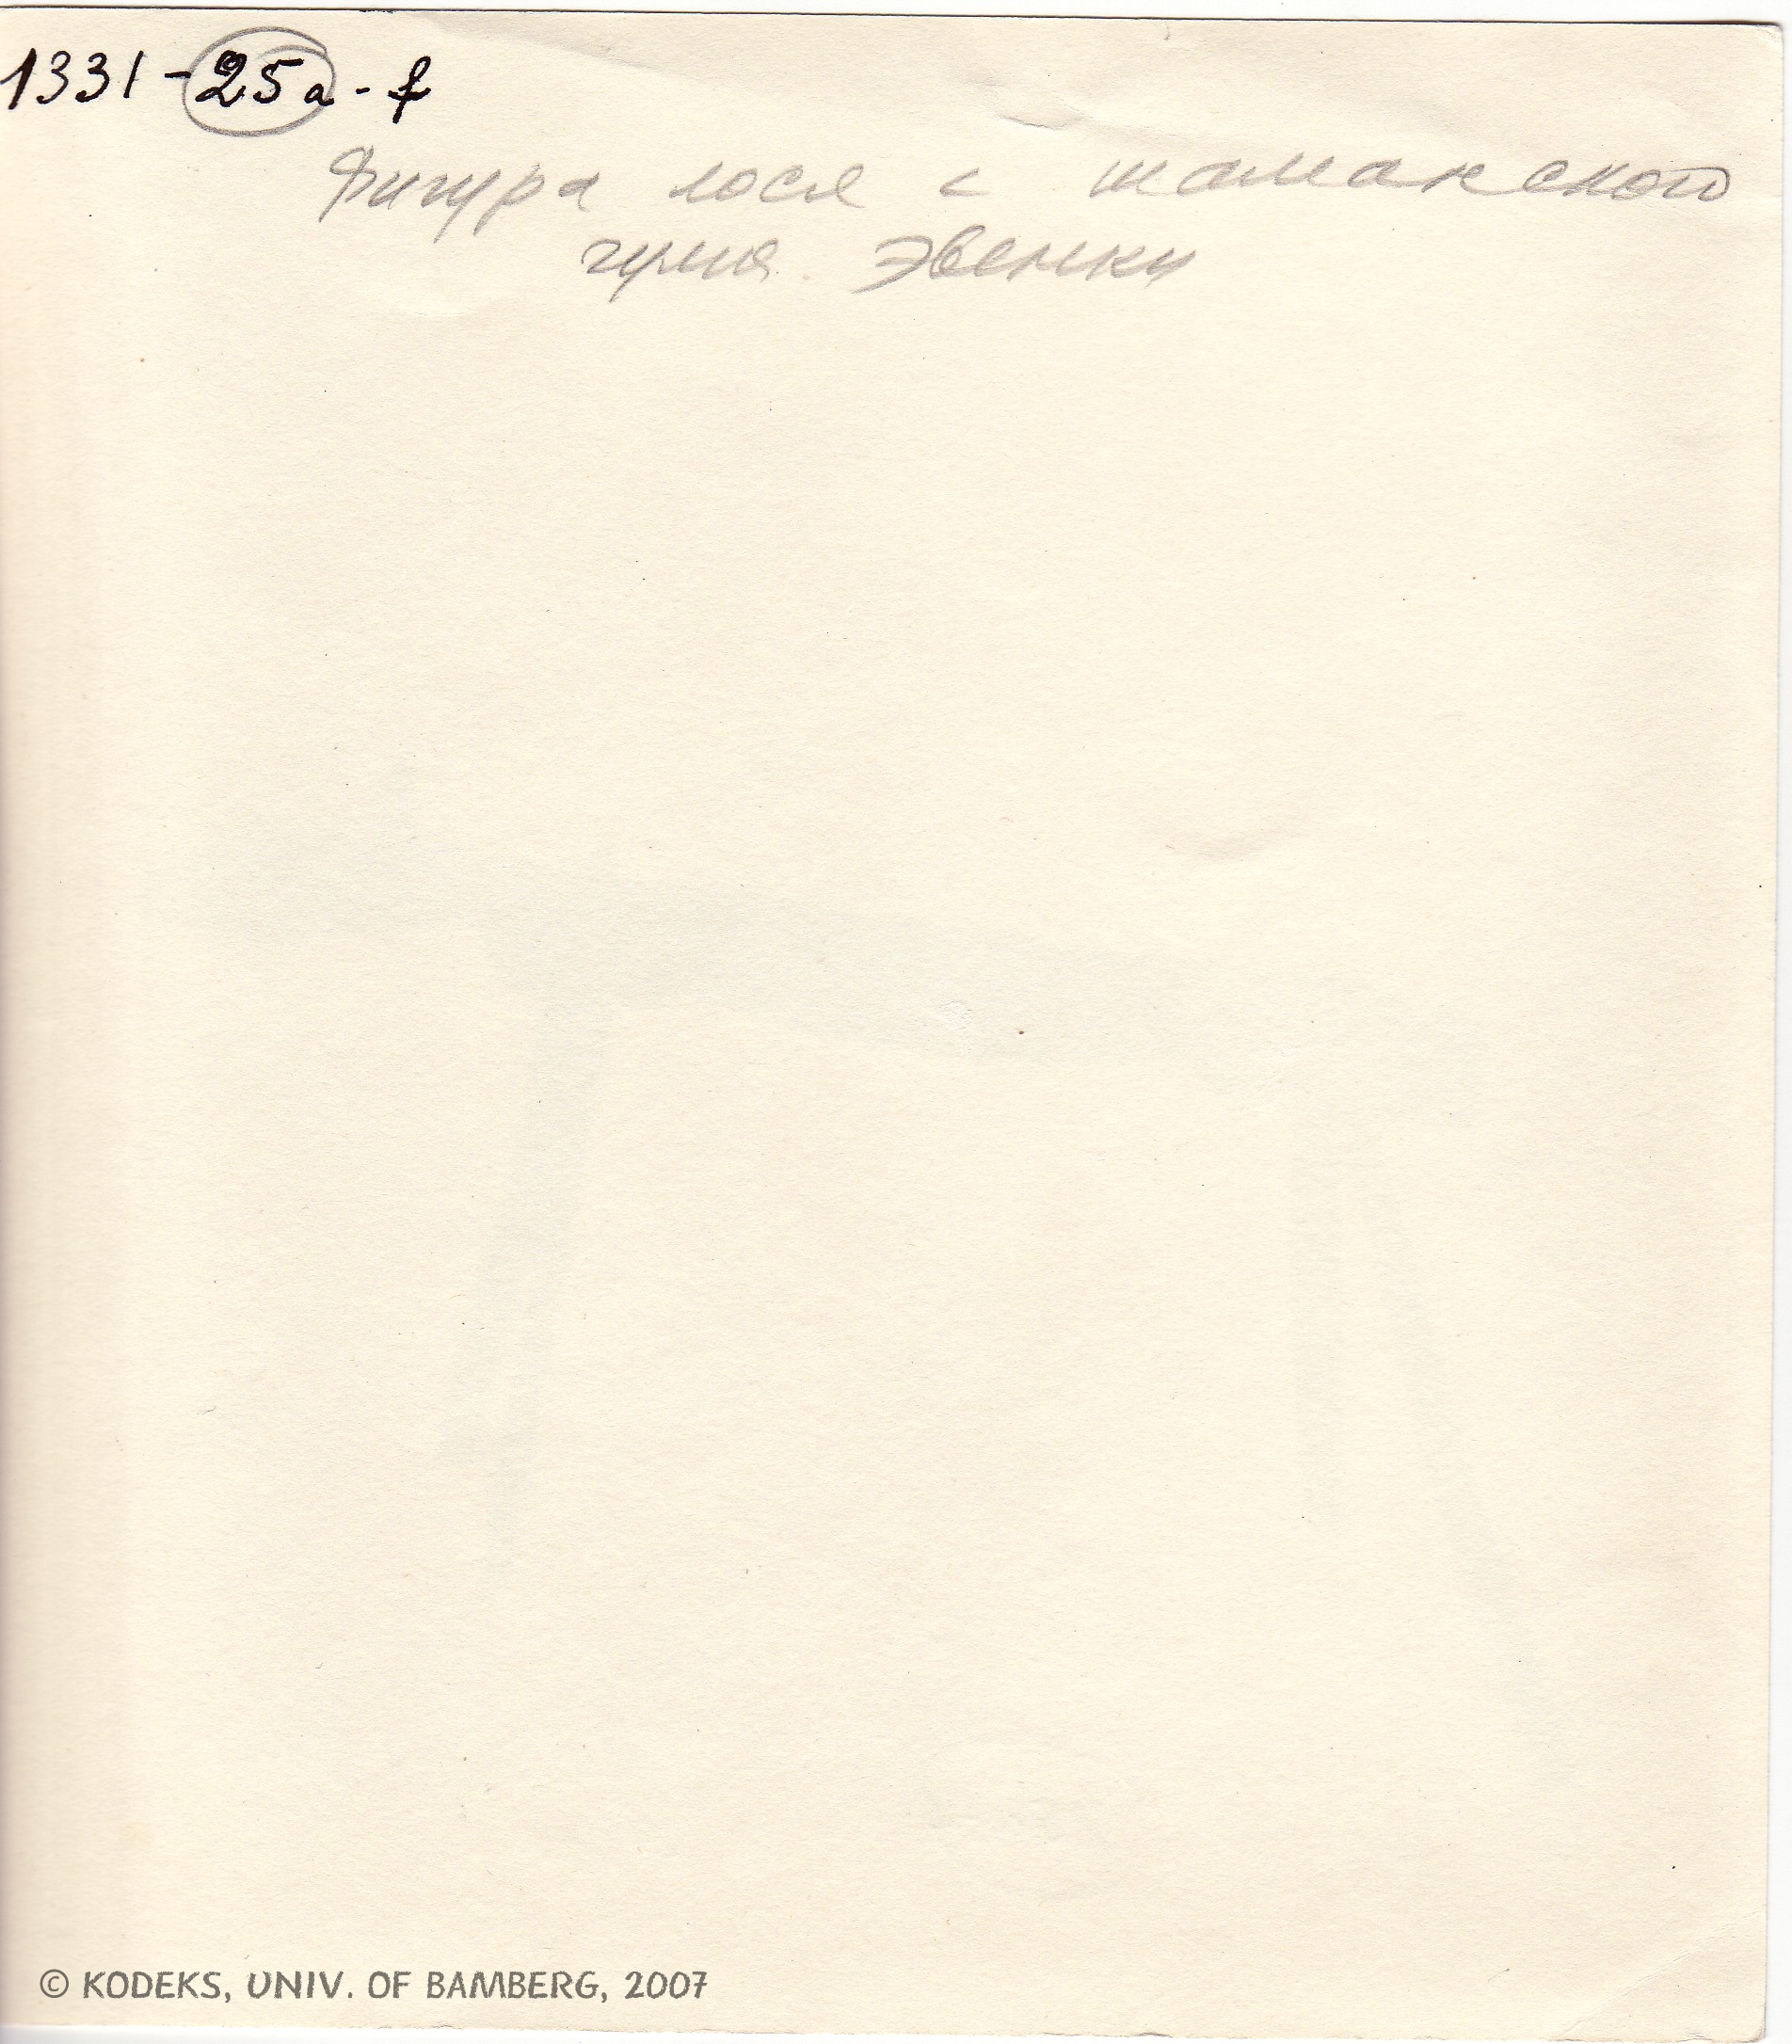 1331-25а-f
Фигура лося с шаманского
чума. Эвенки
© KODEKS, UNIV. OF BAMBERG, 2007